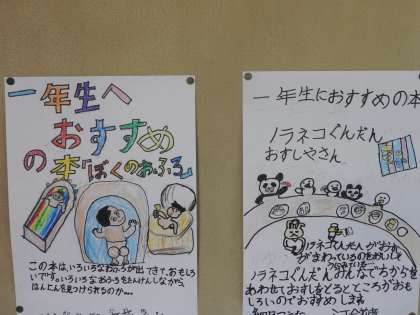 一年生へ
おすすめ
の本「ぼくのおふろ」
この本は、いろいろなおふろが出てきて、おもしろ
いです。いろいろなおふろをたんけんしながら、
はんにんを見つけられるのか…
一年生におすすめの本
ノラネコぐんだん
おすしやさん
ノラネコぐんだんがおすし
がまわっているのを
ノラネコぐんだんのみんなでちからを
あわせておすしをとるところがおも
しろいのでおすすめします